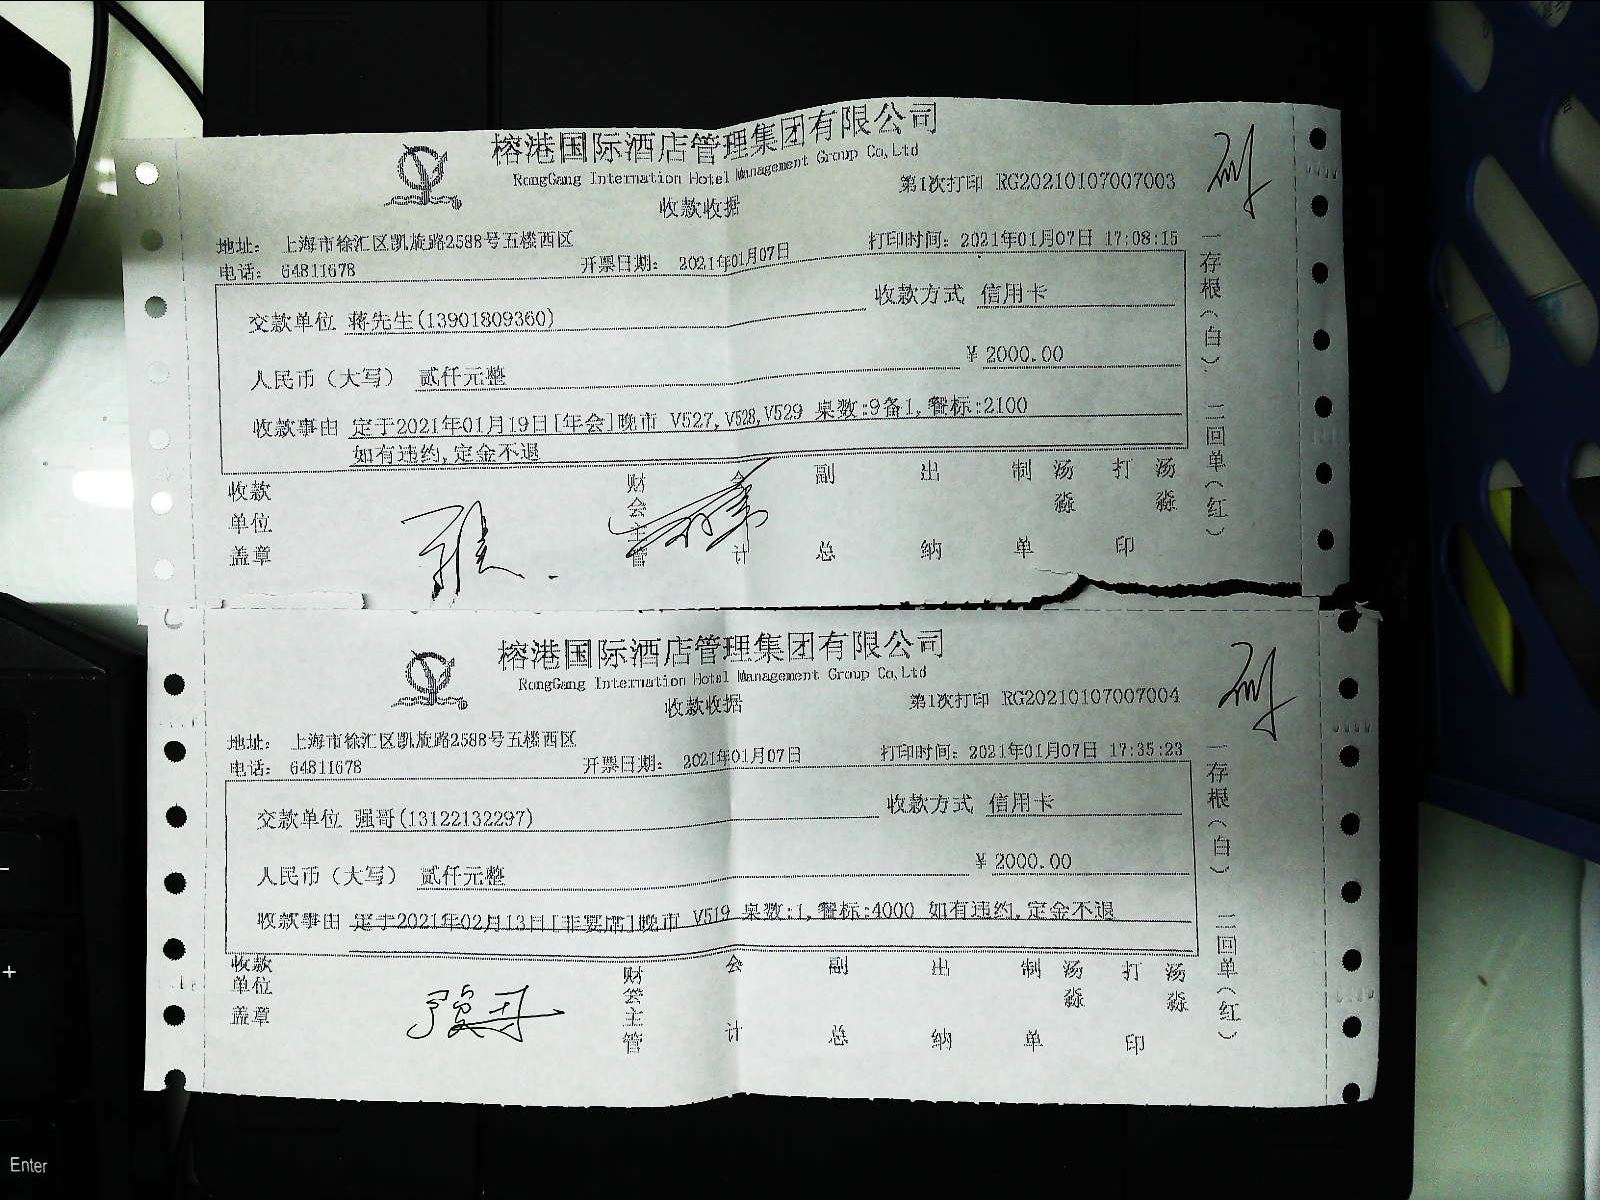 榕港国际酒店管理集团有限公司
RongGang Internation Hotel Management Group Co,Ltd
第1次打印 RG20210107007003
收款收据
地址: 上海市徐汇区凯旋路2588号五楼西区
打印时间: 2021年01月07日 17:08:15
电话: 64811678
开票日期: 2021年01月07日
交款单位 蒋先生(13901809360)
收款方式 信用卡
人民币(大写) 贰仟元整
¥ 2000.00
收款事由 定于2021年01月19日[年会]晚市 V527,V528,V529 桌数:9备1,餐标:2100
如有违约,定金不退
收款单位盖章
财会主管
会计
副总
出纳
制单
汤淼
打印
汤淼
一存根(白) 二回单(红)
榕港国际酒店管理集团有限公司
RongGang Internation Hotel Management Group Co,Ltd
第1次打印 RG20210107007004
收款收据
地址: 上海市徐汇区凯旋路2588号五楼西区
打印时间: 2021年01月07日 17:35:23
电话: 64811678
开票日期: 2021年01月07日
交款单位 强哥(13122132297)
收款方式 信用卡
人民币(大写) 贰仟元整
¥ 2000.00
收款事由 定于2021年02月13日[非宴席]晚市 V519 桌数:1,餐标:4000 如有违约,定金不退
收款单位盖章
财会主管
会计
副总
出纳
制单
汤淼
打印
汤淼
一存根(白) 二回单(红)
+
Enter